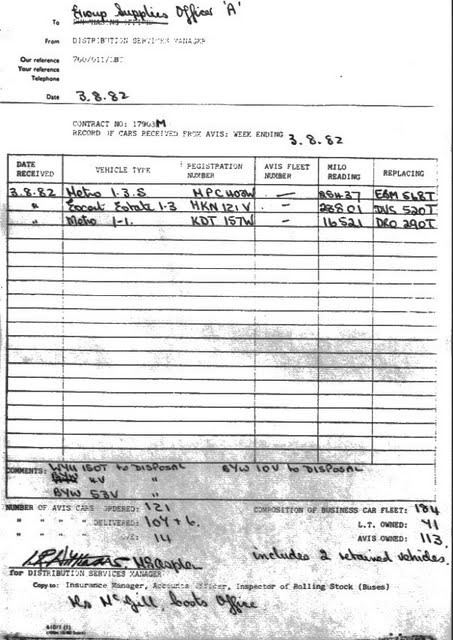 Group Supplies Officer 'A'
To
From DISTRIBUTION SERVICES MANAGER
Our reference
Your reference
Telephone
Date 3.8.82
CONTRACT NO: 17903M
RECORD OF CARS RECEIVED FROM AVIS: WEEK ENDING 3.8.82
DATE RECEIVED VEHICLE TYPE REGISTRATION NUMBER AVIS FLEET NUMBER MILO READING REPLACING
3.8.82 Metro 1.3.S —
" Escort Estate 1.3 HKN 121V — 28801 DUS 520T
" Metro 1-1. KDT 157W — 16521 DRO 290T
COMMENTS: WYU 150T to DISPOSAL BYW 10V to DISPOSAL
4V "
BYW 53V "
NUMBER OF AVIS CARS ORDERED: 121 COMPOSITION OF BUSINESS CAR FLEET: 184
" " " " DELIVERED: 107+6. L.T. OWNED: 71
" " " " 14 AVIS OWNED: 113
includes 2 retained vehicles.
for DISTRIBUTION SERVICES MANAGER
Copy to: Insurance Manager, Accounts Officer, Inspector of Rolling Stock (Buses)
McGill Costs Office